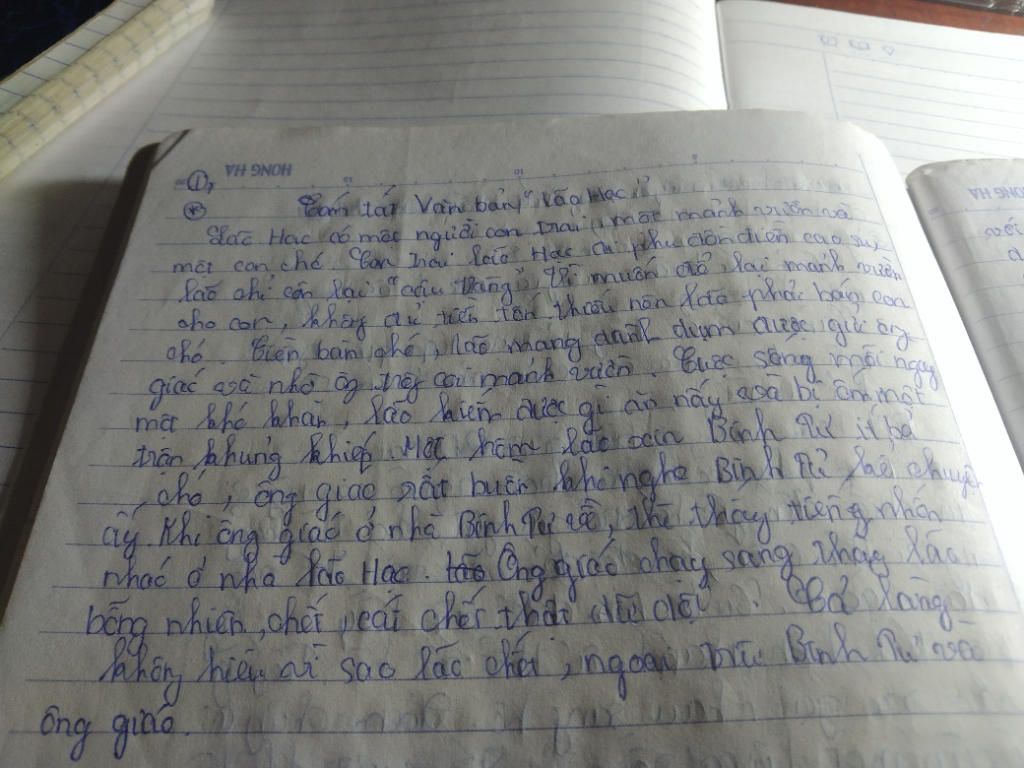 HONG HA
①,
Tóm tắt Văn bản "Lão Hạc"
Lão Hạc có một người con trai, một mảnh vườn và
một con chó. Con trai lão Hạc đi phu đồn điền cao su,
lão chỉ còn lại "cậu Vàng". Vì muốn để lại mảnh vườn
cho con, không đủ tiền tốn nên lão phải bán con
chó. Tiền bán chó, lão mang dành dụm được gửi ông
giáo và nhờ ôg trôg coi mảnh vườn. Cuộc sống mỗi ngày
một khó khăn, lão kiếm được gì ăn nấy và bị ốm một
trận khủng khiếp. Một hôm lão xin Binh Tư ít bả
chó, ông giáo rất buồn khi nghe Binh Tư kể chuyện
ấy. Khi ông giáo ở nhà Binh Tư về, thì thấy tiếng nhốn
nháo ở nhà lão Hạc. Ông giáo chạy sang thấy lão
bỗng nhiên chết, cái chết thật dữ dội. Cả làng
không hiểu vì sao lão chết, ngoài trừ Binh Tư và
ông giáo.
HONG HA